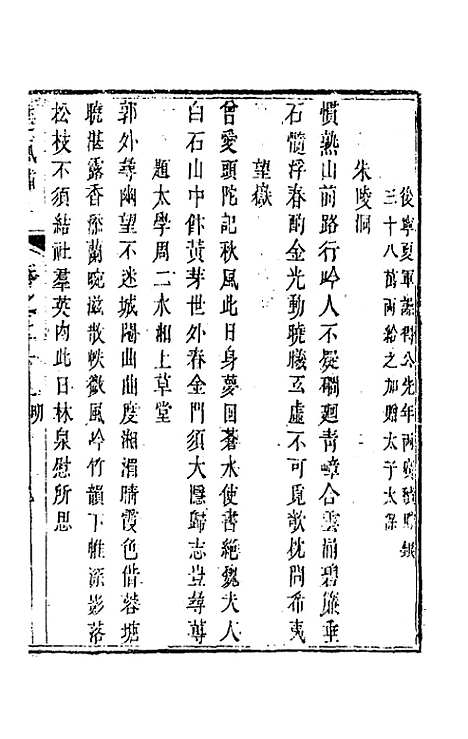 後寧夏軍譁得公先年所貯銀
三十八萬兩給之加贈太子太保
朱陵洞
慣熟山前路行吟人不疑磵迴青嶂合雲崩碧簾垂
石髓浮春酌金光動曉曦玄虛不可覓欹枕問希夷
望嶽
曾愛頭陀記秋風此日身夢回蒼水使書絶魏夫人
白石山中侔黃芽世外春金門須大隱歸志豈蓴蓴
題太學周二水湘上草堂
郭外尋幽望不迷城隅曲曲度湘湄晴霞色借蓉塘
曉湛露香添蘭畹滋散帙微風吟竹韻下帷深影落
松枝不須結社羣英內此日林泉慰所思